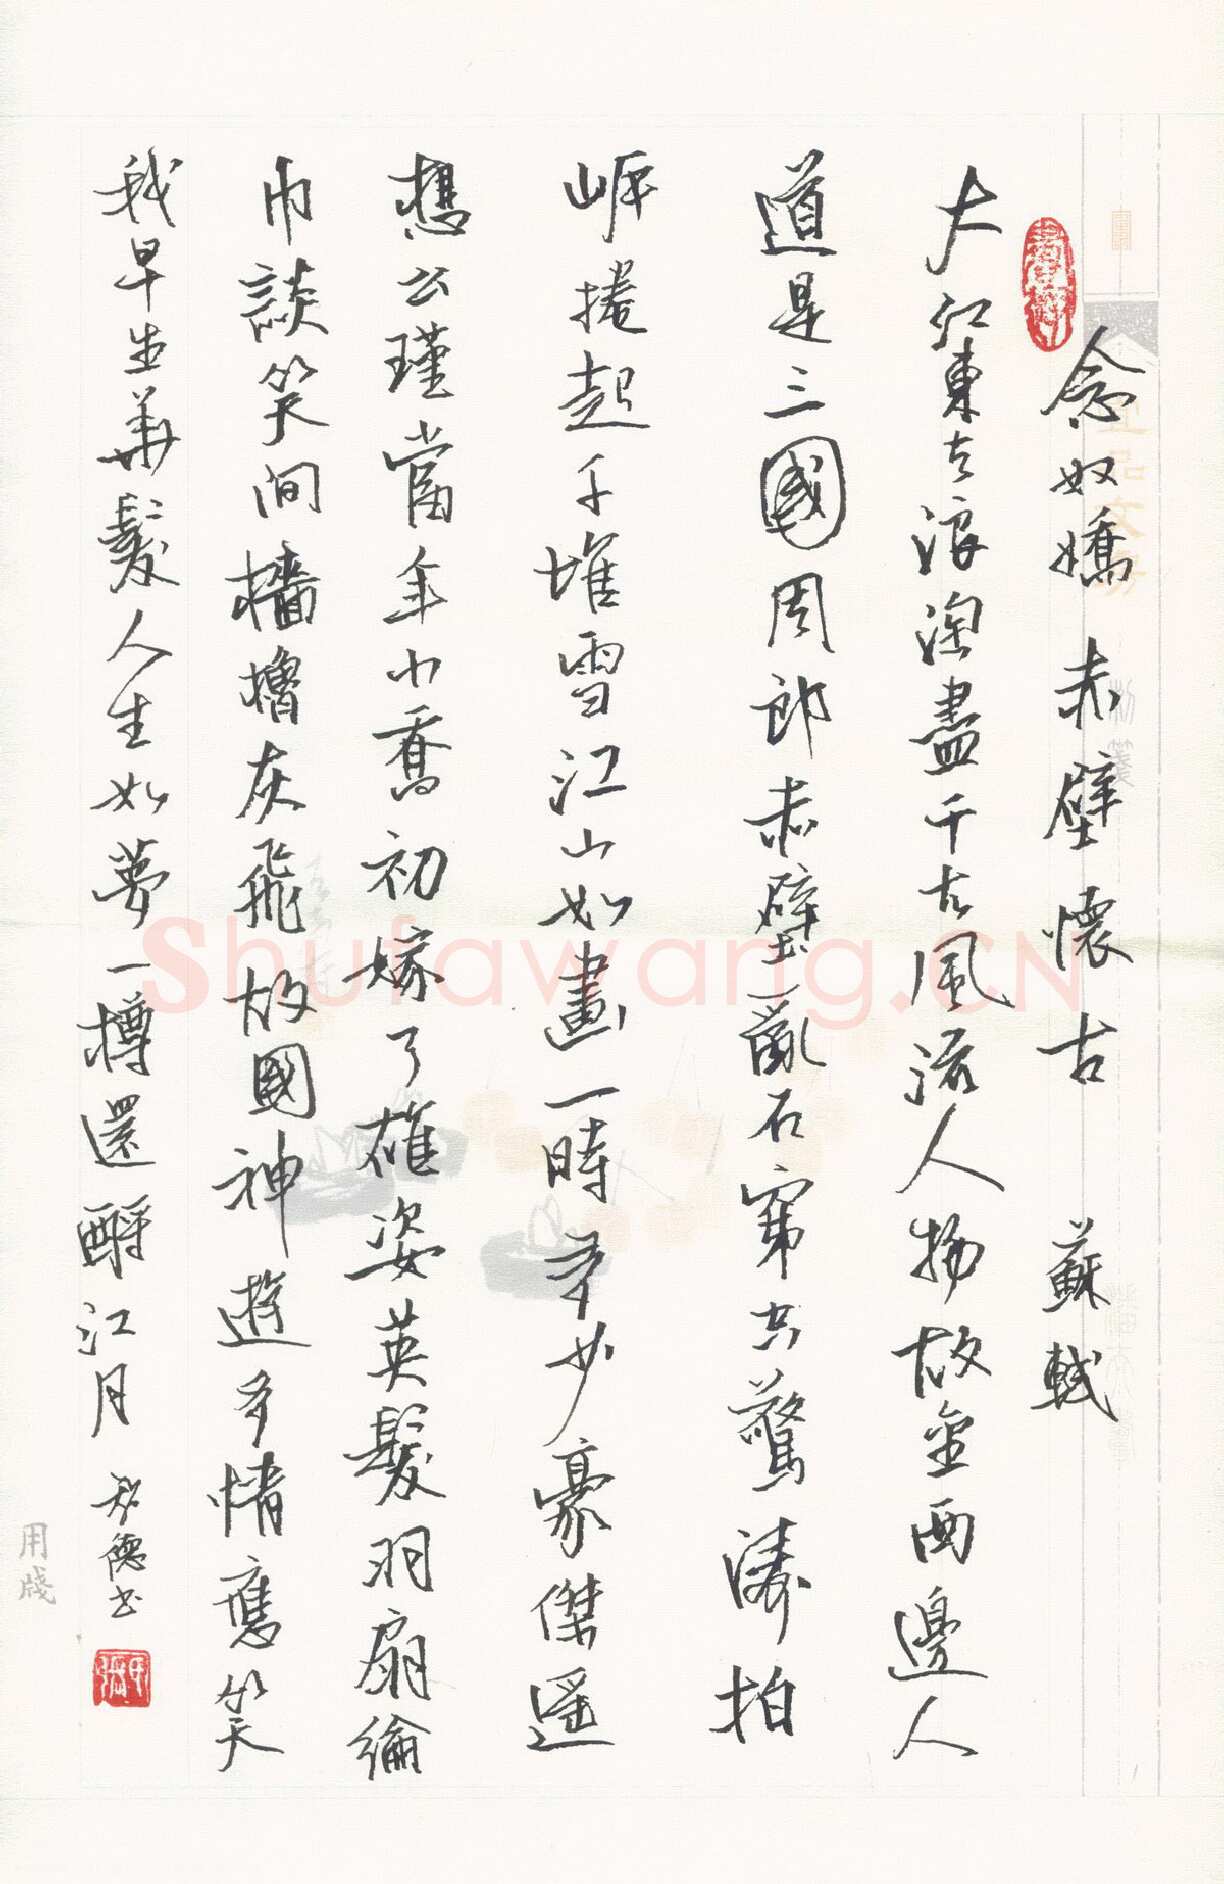 念奴嬌 赤壁懷古 蘇軾
大江東去浪淘盡千古風流人物故壘西邊人
道是三國周郎赤壁亂石穿空驚濤拍
崖捲起千堆雪江山如畫一時多少豪傑遥
想公瑾當年小喬初嫁了雄姿英髮羽扇綸
巾談笑間檣櫓灰飛故國神遊多情應笑
我早生華髮人生如夢一樽還酹江月
德书
用牋
Shufawang.CN